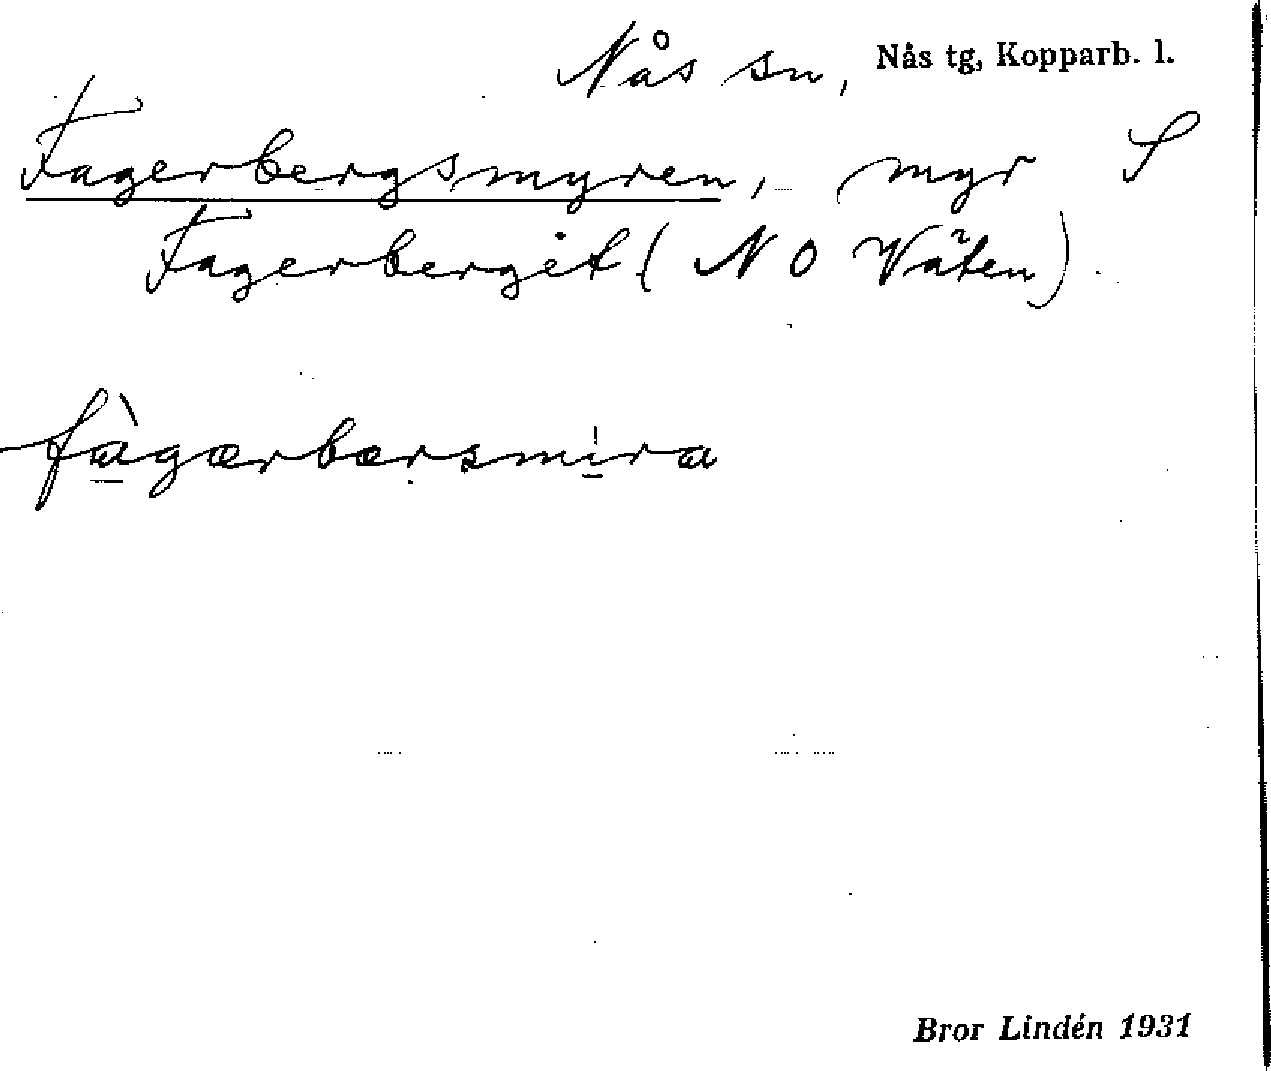 Nås sn, Nås tg, Kopparb. l.
Fagerbergsmyren, myr S
Fagerberget (NO Väten).
fàgærbærsmira
Bror Lindén 1931